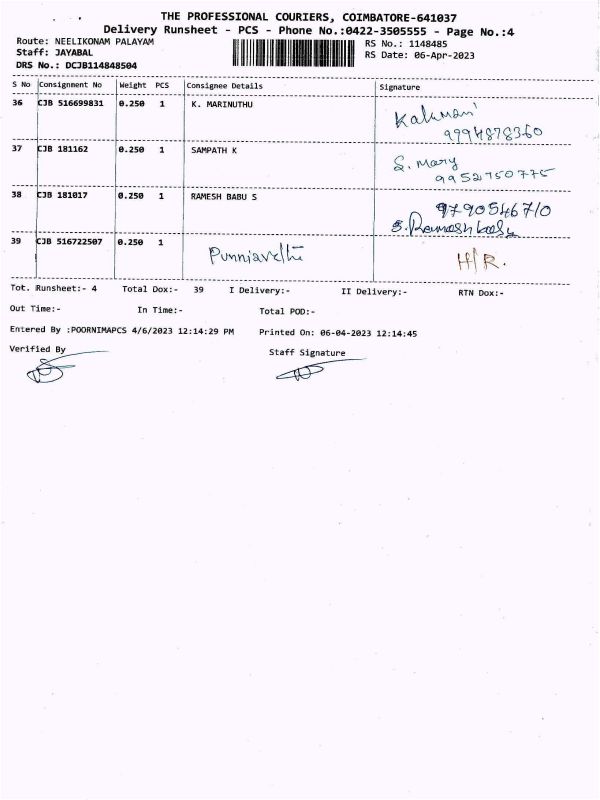 THE PROFESSIONAL COURIERS, COIMBATORE-641037
Delivery Runsheet - PCS - Phone No.:0422-3505555 - Page No.:4
Route: NEELIKONAM PALAYAM RS No.: 1148485
Staff: JAYABAL RS Date: 06-Apr-2023
DRS No.: DCJB114848504
S No Consignment No Weight PCS Consignee Details Signature
36 CJB 516699831 0.250 1 K. MARINUTHU
9994878360
37 CJB 181162 0.250 1 SAMPATH K S. Mary
9952750775
38 CJB 181017 0.250 1 RAMESH BABU S 9790546710
S. Ramesh babu
39 CJB 516722507 0.250 1 H/R.
Tot. Runsheet:- 4 Total Dox:- 39 I Delivery:- II Delivery:- RTN Dox:-
Out Time:- In Time:- Total POD:-
Entered By :POORNIMAPCS 4/6/2023 12:14:29 PM Printed On: 06-04-2023 12:14:45
Verified By Staff Signature